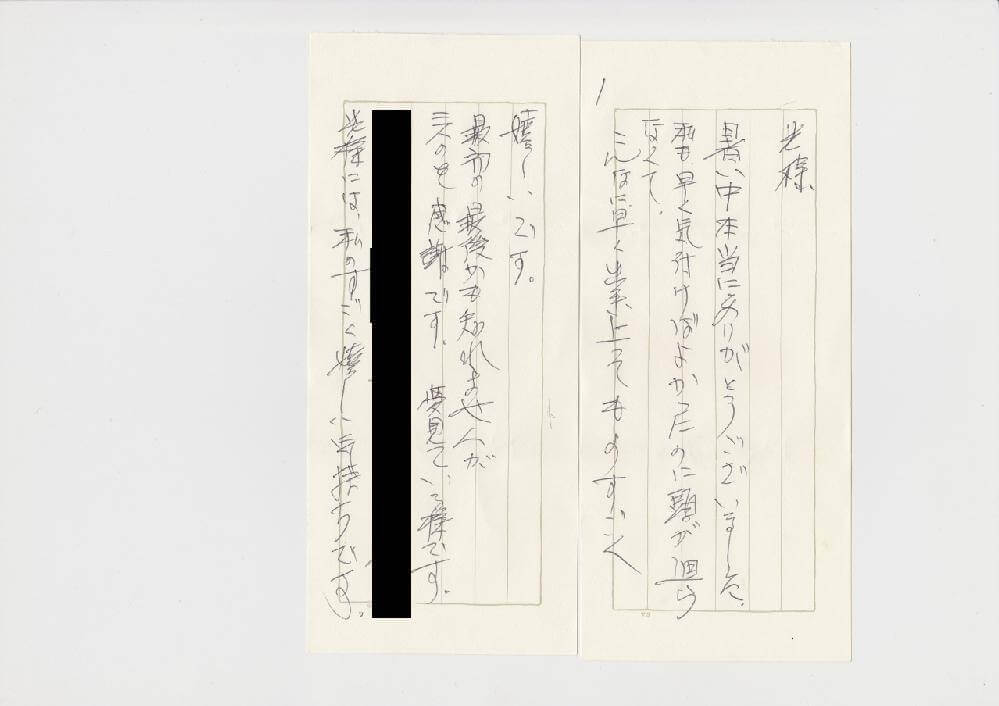 光様
暑い中本当にありがとうございました。
私も早く気付けばよかったのに頭が廻ら
なくて、
こんなに早く出来上ってものすごく
嬉しいです。
最初の最後かも知れませんが
感謝です。夢見ている様です。
光様には、私のすごく嬉しい気持ちです。